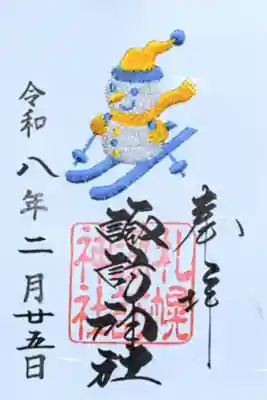 奉拝
諏訪神社
札幌
神社
令和八年二月廿五日